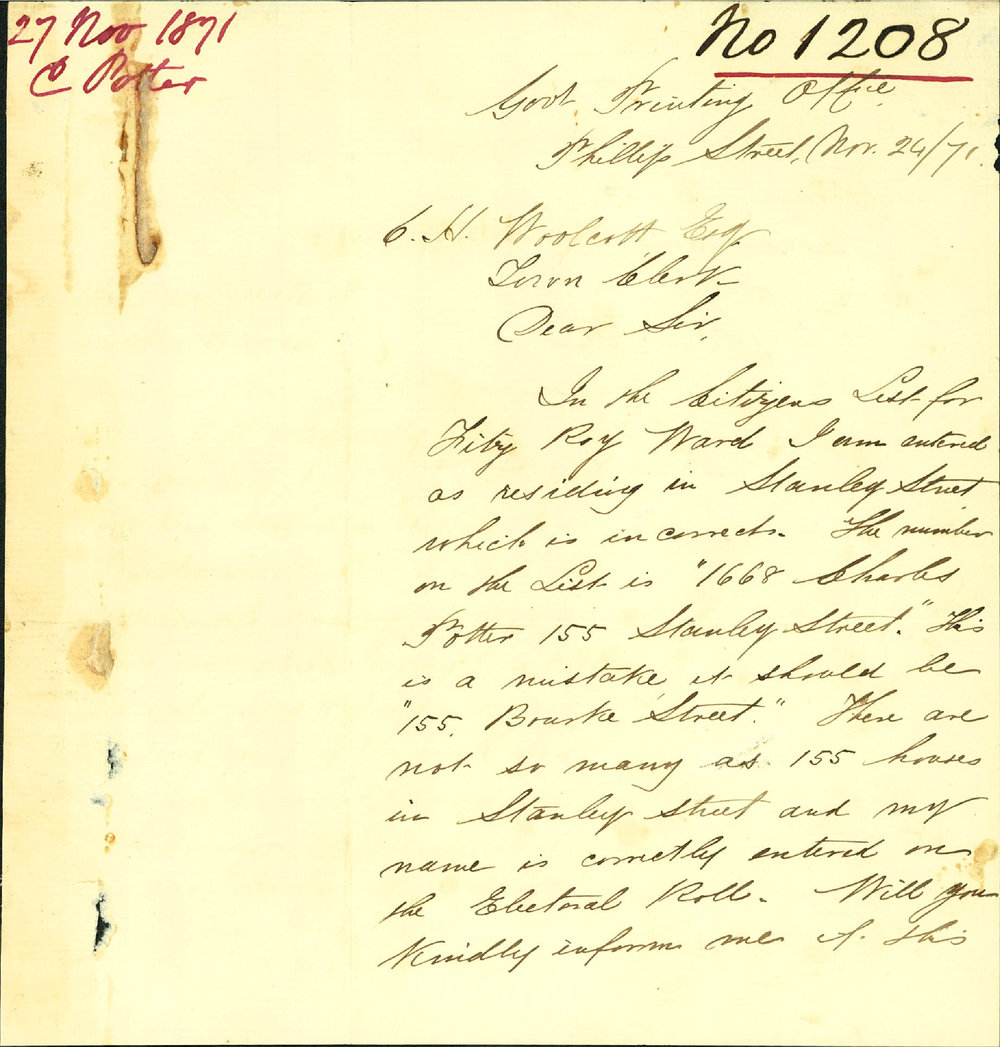 27 Nov 1871
C Potter
No 1208
Govt Printing Office
Phillip Street, Nov. 24/71.
C. H. Woolcott Esq
Town Clerk
Dear Sir,
In the Citizens List for
Fitz Roy Ward I am entered
as residing in Stanley Street
which is incorrect. The number
on the List is "1668 Charles
Potter 155 Stanley Street." This
is a mistake, it should be
"155, Bourke Street." There are
not so many as 155 houses
in Stanley Street and my
name is correctly entered on
the Electoral Roll. Will you
Kindly inform me if this